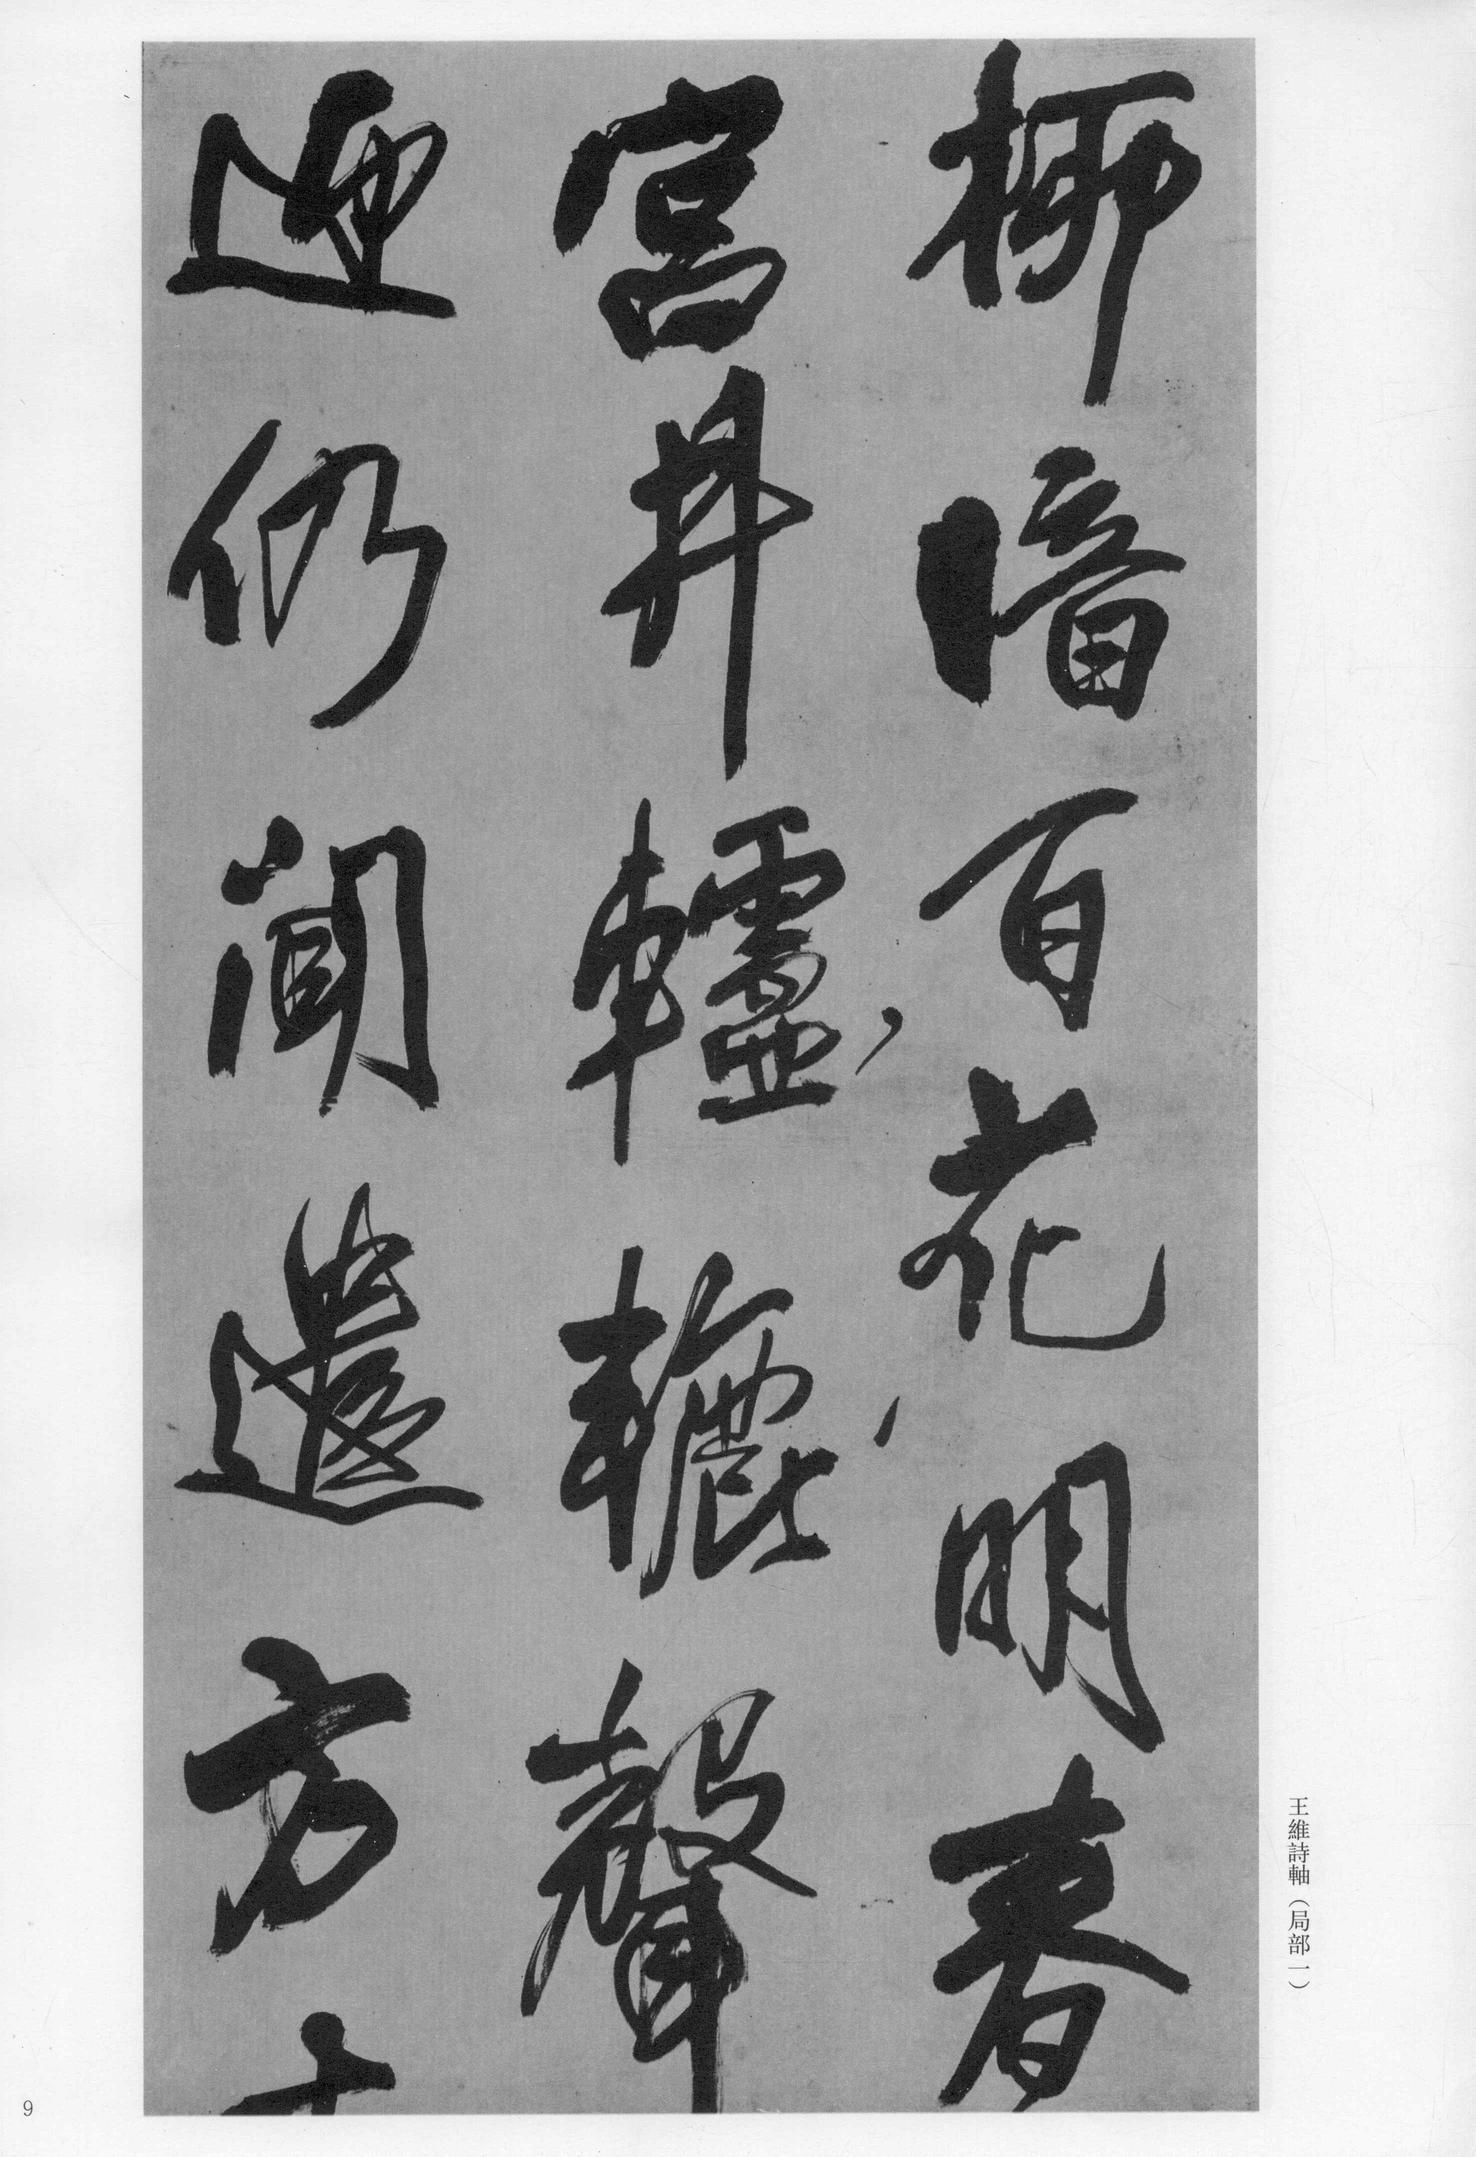 柳暗百花明春
宮井轤轆聲
迎仍聞遣方
王維詩軸（局部一）
9